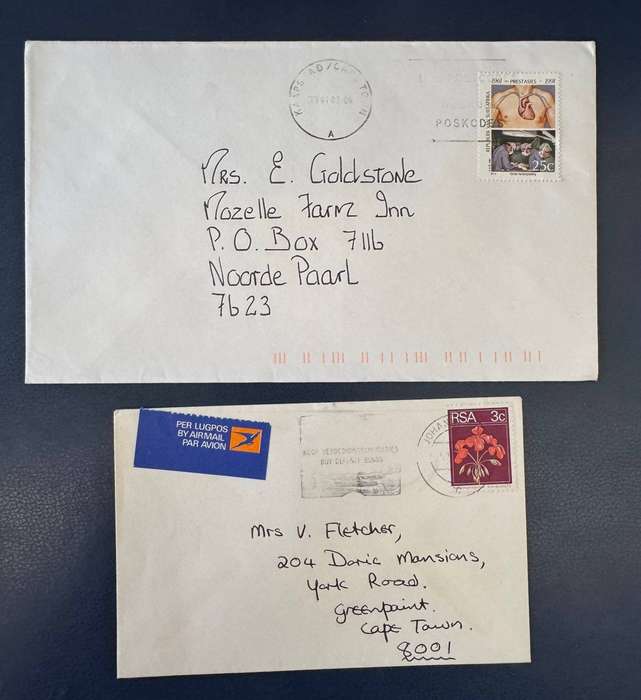 KAAPSTAD/CAPE TOWN
A
POSKODES
1961 PRESTASIES 1991
REPUBLIEK SUID-AFRIKA
25c
Mrs. E. Goldstone
Mozelle Farm Inn
P.O. Box 7116
Noorde Paarl
7623
PER LUGPOS
BY AIRMAIL
PAR AVION
KOOP VERDEDIGINGSOBLIGASIES
BUY DEFENCE BONDS
JOHAN
RSA 3c
Mrs V. Fletcher,
204 Doric Mansions,
York Road.
Greenpoint.
Cape Town.
8001